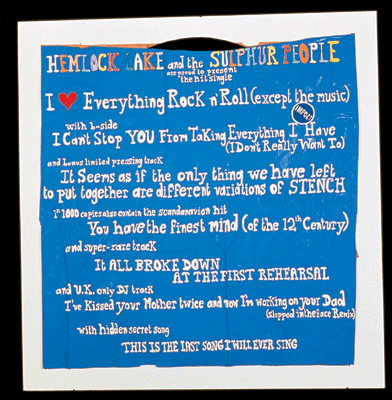 HEMLOCK LAKE and the SULPHUR PEOPLE
are proud to present
the hit single
I ♥ Everything Rock n' Roll (except the music)
IMPORT
with b-side
I Can't Stop YOU From Taking Everything I Have
(I Don't Really Want To)
and bonus limited pressing track
It Seems as if the only thing we have left
to put together are different variations of STENCH
1st 1000 copies also contain the scandanavian hit
You have the finest mind (of the 12th Century)
and super-rare track
It ALL BROKE DOWN
AT THE FIRST REHEARSAL
and U.K. only DJ track
I've Kissed your Mother twice and now I'm working on your Dad
(slipped in the face Remix)
with hidden secret song
THIS IS THE LAST SONG I WILL EVER SING